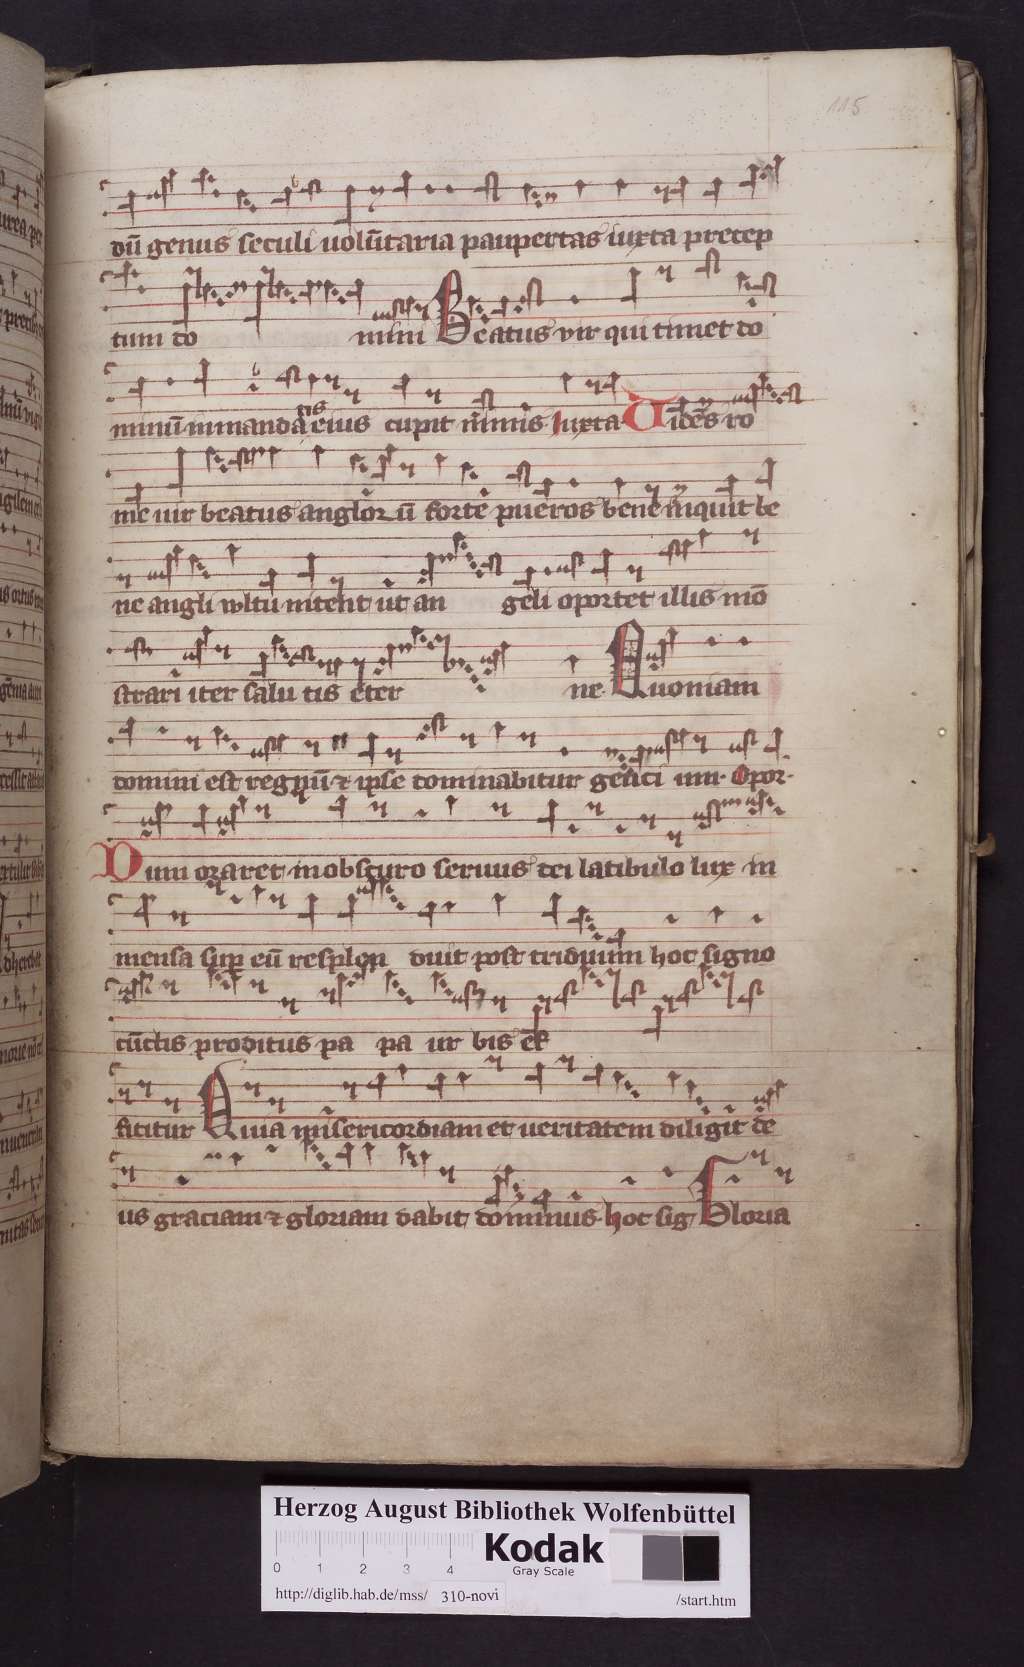 115
dū genus seculi uolūtaria paupertas iuxta precep
tum do mini Beatus vir qui timet do
minū in mandatis eius cupit nimis Iuxta Uidēs ro
me uir beatus anglor ū forte pueros bene inquit be
ne angli wltu nitent ut an geli oportet illis mō
strari iter salu tis eter ne Quoniam
domini est regnū ⁊ ipse dominabitur gencī um Opor
Dum oraret in obscuro seruus dei latibulo lux in
mensa sup eū resplen duit post triduum hoc signo
cūctis proditus pa pa ur bis
ficitur Quia misericordiam et ueritatem diligit de
us graciam ⁊ gloriam dabit dominus hoc sig Gloria
Herzog August Bibliothek Wolfenbüttel
0 1 2 3 4
Kodak
Gray Scale
http://diglib.hab.de/mss/ 310-novi /start.htm